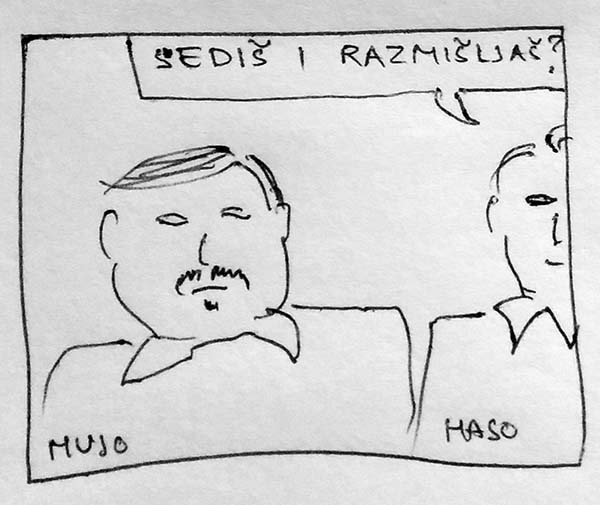 SEDIŠ I RAZMIŠLJAŠ?
MUJO
HASO